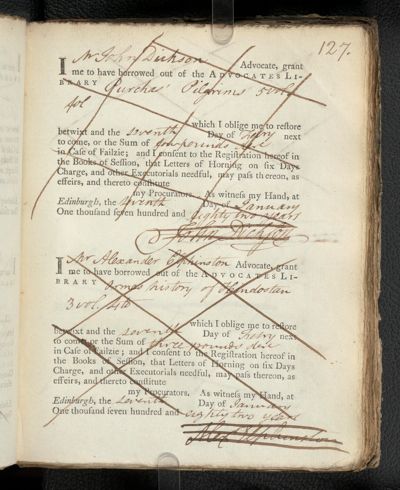 127.
I Mr John Dickson Advocate, grant
me to have borrowed out of the ADVOCATES LI-
BRARY Purchas' Pilgrims 5 vol
fol
which I oblige me to reſtore
betwixt and the seventh Day of next
to come, or the Sum of pounds
in Caſe of Failzie; and I conſent to the Regiſtration hereof in
the Books of Seſſion, that Letters of Horning on ſix Days
Charge, and other Executorials needful, may paſs thereon, as
effeirs, and thereto conſtitute
my Procurators. As witneſs my Hand, at
Edinburgh, the seventh Day of January
One thouſand ſeven hundred and eighty two years
John Dickson
I Mr Alexander Elphinston Advocate, grant
me to have borrowed out of the ADVOCATES LI-
BRARY Ormes history of Hindostan
3 vol. 4to
which I oblige me to reſtore
betwixt and the seventh Day of next
to come, or the Sum of three pounds
in Caſe of Failzie; and I conſent to the Regiſtration hereof in
the Books of Seſſion, that Letters of Horning on ſix Days
Charge, and other Executorials needful, may paſs thereon, as
effeirs, and thereto conſtitute
my Procurators. As witneſs my Hand, at
Edinburgh, the seventh Day of January
One thouſand ſeven hundred and eighty two years
Alexr Elphinston